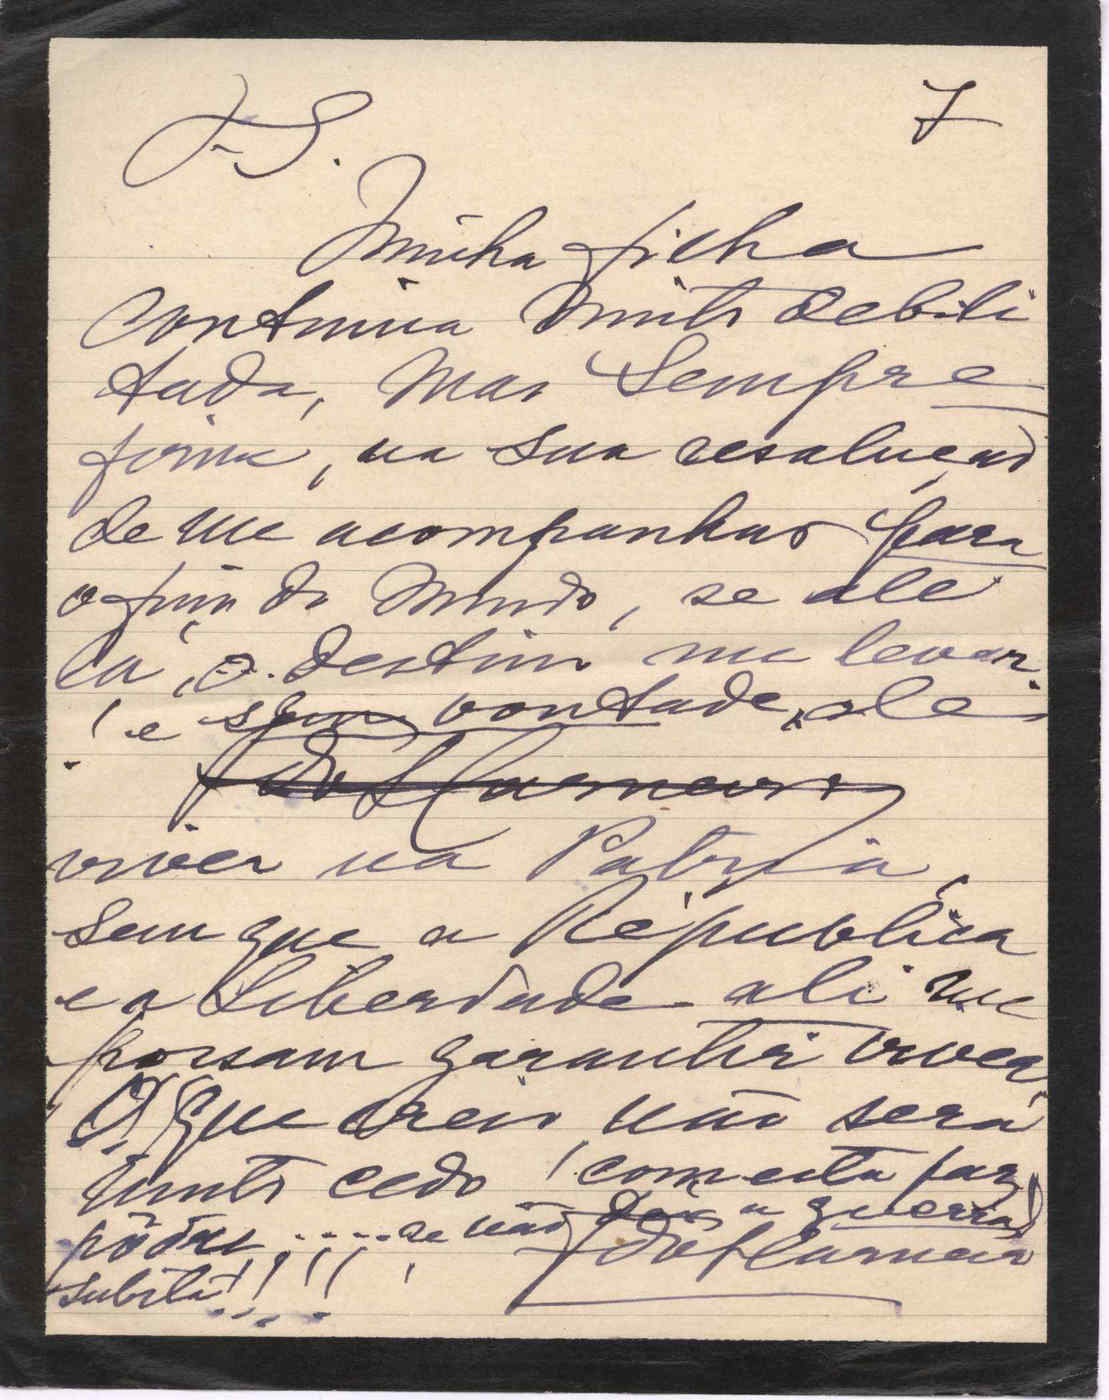 7
P.S.
Minha filha
continua muito debili
tada, mas sempre
firme, na sua resolução
de me acompanhar para
o fim do mundo, se ale
lá, o destino me levar.
! e sem vontade, de
viver na Patria,
sem que a Républica
e a Liberdade ali me
possam garantir viver.
O que creio não será
muito cedo! com esta paz
pôdre, .... se não a guerra
subita!!!!